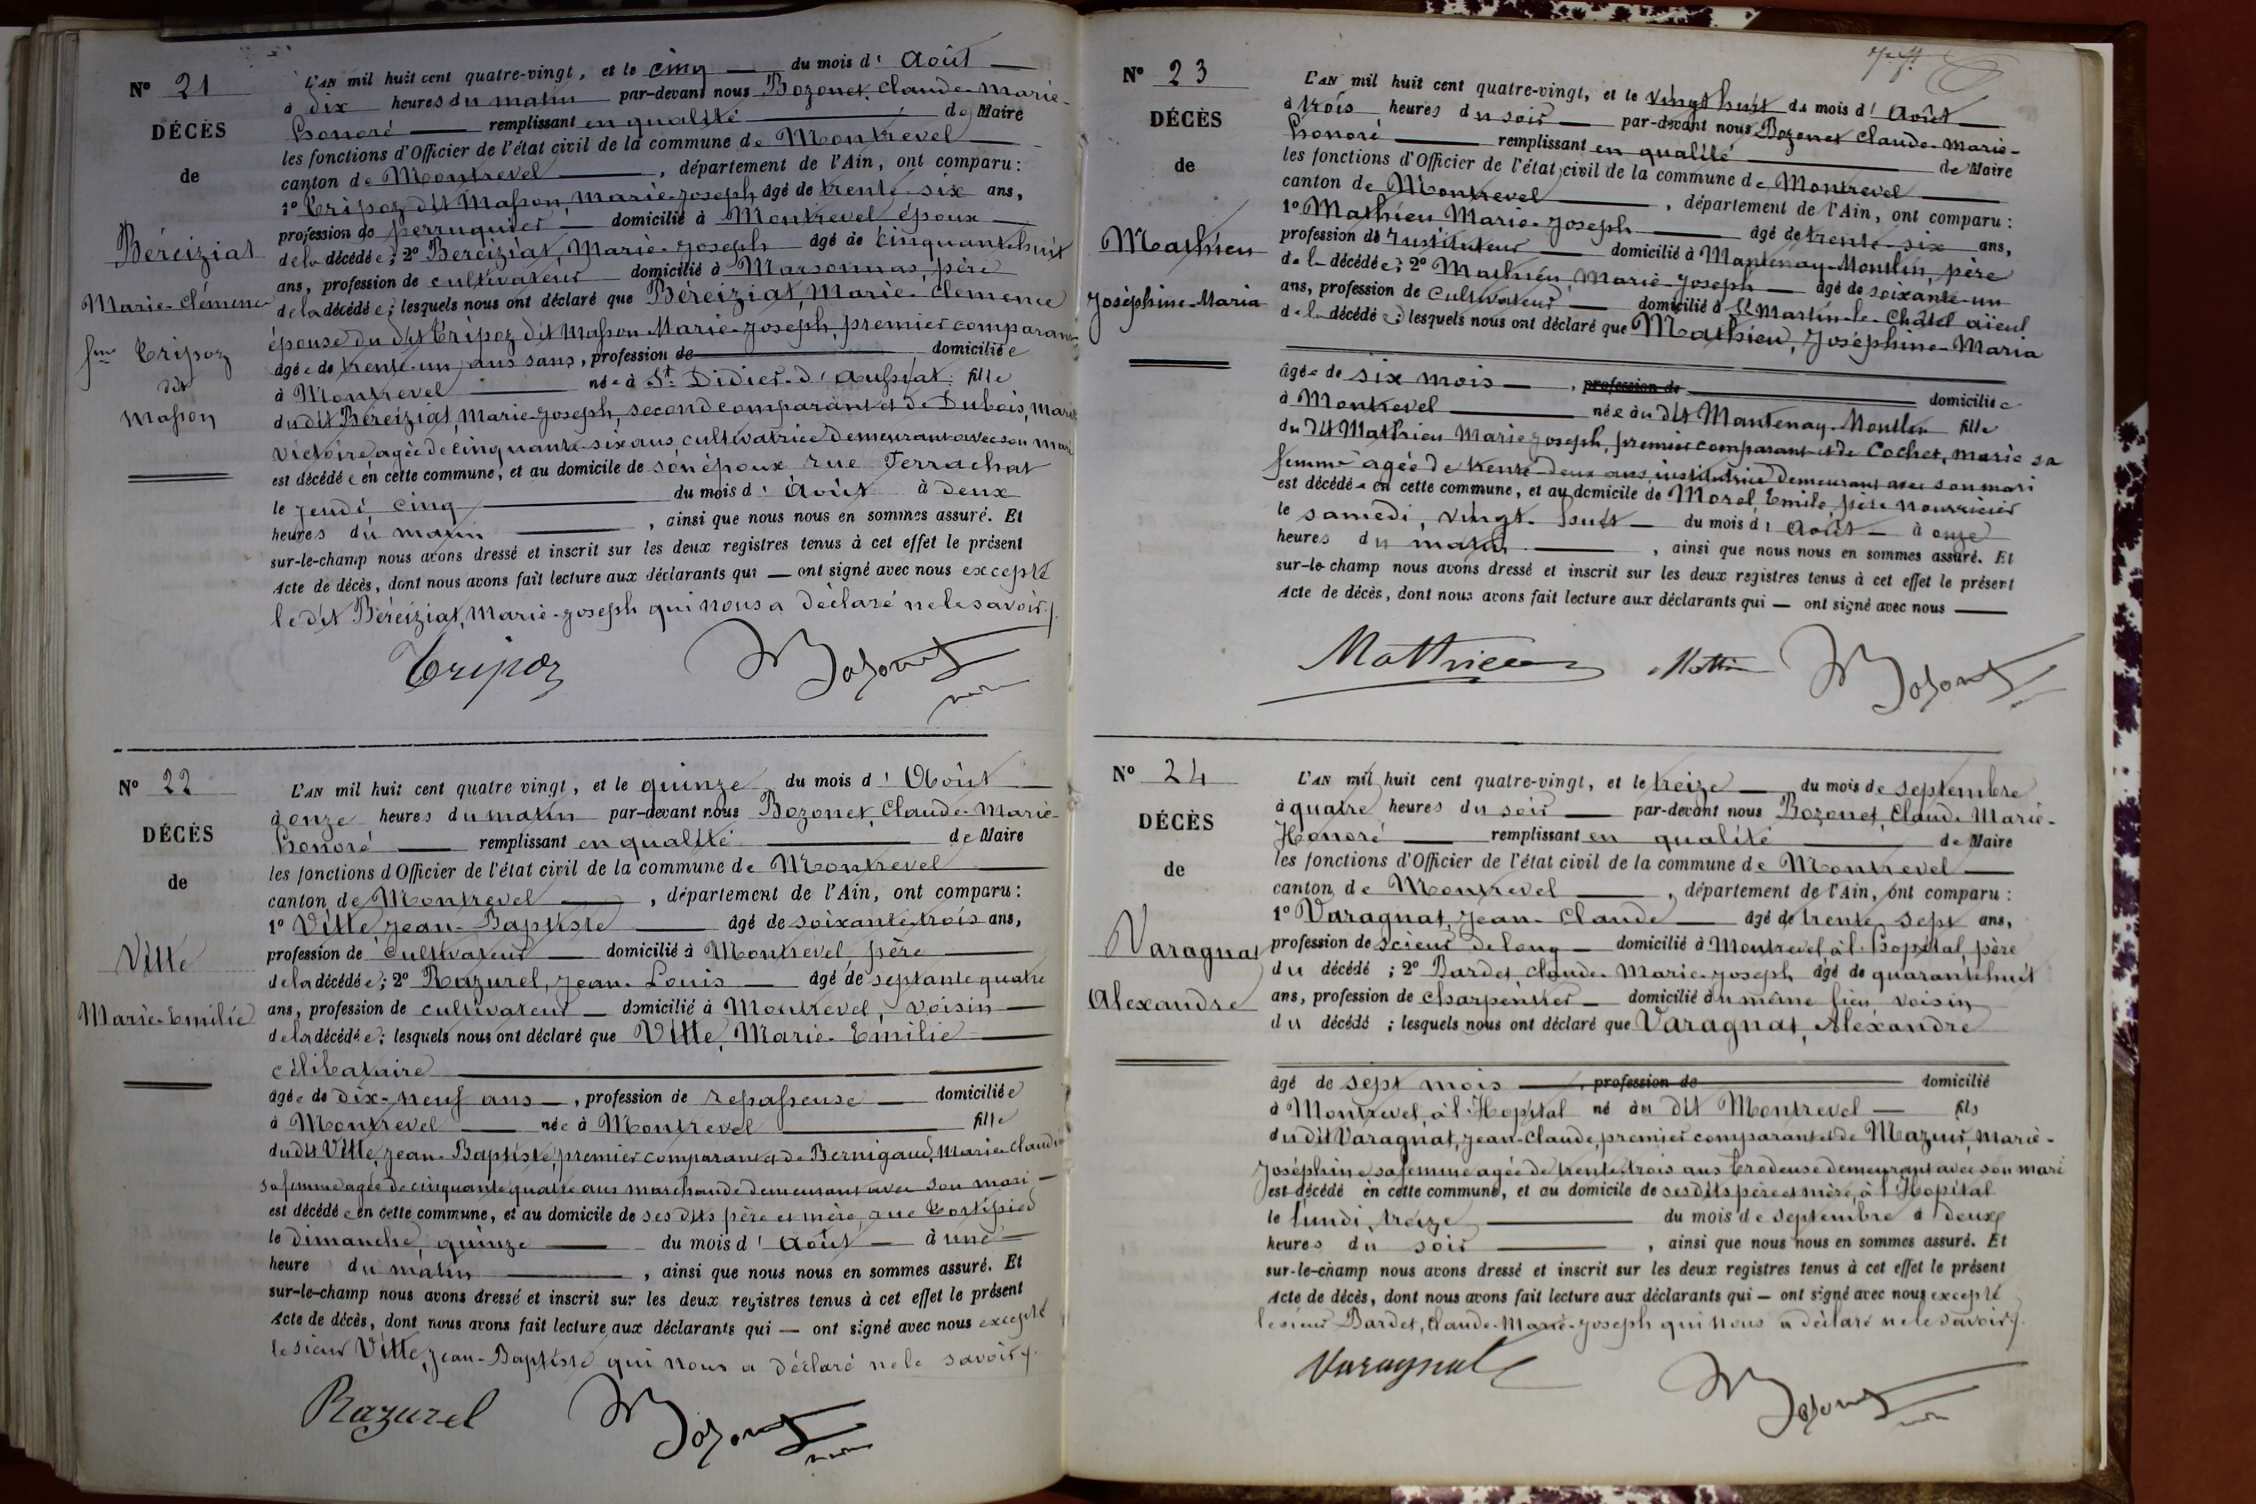 N° 21
DÉCÈS
de
Béreiziat
Marie-Clémence
fme Tripoz
dit
Masson
L'AN mil huit cent quatre-vingt, et le cinq du mois d'Août
à dix heures du matin par-devant nous Bozonet, Claude-Marie-
Honoré remplissant en qualité de Maire
les fonctions d'Officier de l'état civil de la commune de Montrevel
canton de Montrevel, département de l'Ain, ont comparu :
1° Tripoz dit Masson, Marie-Joseph, âgé de trente-six ans,
profession de perruquier domicilié à Montrevel époux
de la décédée ; 2° Béreiziat, Marie-Joseph âgé de cinquante huit
ans, profession de cultivateur domicilié à Marsonnas, père
de la décédée ; lesquels nous ont déclaré que Béreiziat, Marie-Clémence
épouse du dit Tripoz dit Masson Marie-Joseph, premier comparant
âgée de trente-un ans sans, profession de domiciliée
à Montrevel née à St Didier-d'Aussiat fille
du dit Béreiziat, Marie-Joseph, second comparant et de Dubois, Marie
Victoire agée de cinquante-six ans cultivatrice demeurant avec son mari
est décédée en cette commune, et au domicile de son époux rue Ferrachat
le jeudi cinq du mois d'Août à deux
heures du matin, ainsi que nous nous en sommes assuré. Et
sur-le-champ nous avons dressé et inscrit sur les deux registres tenus à cet effet le présent
Acte de décès, dont nous avons fait lecture aux déclarants qui — ont signé avec nous excepté
le dit Béreiziat, Marie-Joseph qui nous a déclaré ne le savoir.
Tripoz Bozonet
N° 22
DÉCÈS
de
Vitte
Marie-Emilie
L'AN mil huit cent quatre vingt, et le quinze du mois d'Août
à onze heures du matin par-devant nous Bozonet, Claude-Marie-
Honoré remplissant en qualité de Maire
les fonctions d'Officier de l'état civil de la commune de Montrevel
canton de Montrevel, département de l'Ain, ont comparu :
1° Vitte Jean-Baptiste âgé de soixante-trois ans,
profession de Cultivateur domicilié à Montrevel, père
de la décédée ; 2° Razurel, Jean-Louis âgé de septante quatre
ans, profession de cultivateur domicilié à Montrevel, voisin
de la décédée ; lesquels nous ont déclaré que Vitte, Marie-Emilie
célibataire
âgée de dix-neuf ans, profession de repasseuse domiciliée
à Montrevel née à Montrevel fille
du dit Vitte, Jean-Baptiste, premier comparant et de Bernigaud, Marie-Claudine
sa femme agée de cinquante quatre ans marchande demeurant avec son mari
est décédée en cette commune, et au domicile de ses dits père et mère, rue Cortépied
le dimanche quinze du mois d'Août à une
heure du matin, ainsi que nous nous en sommes assuré. Et
sur-le-champ nous avons dressé et inscrit sur les deux registres tenus à cet effet le présent
Acte de décès, dont nous avons fait lecture aux déclarants qui — ont signé avec nous excepté
le sieur Vitte, Jean-Baptiste qui nous a déclaré ne le savoir.
Razurel Bozonet
N° 23
DÉCÈS
de
Mathieu
Joséphine-Maria
L'AN mil huit cent quatre-vingt, et le vingt huit du mois d'Août
à trois heures du soir par-devant nous Bozonet Claude-Marie-
Honoré remplissant en qualité de Maire
les fonctions d'Officier de l'état civil de la commune de Montrevel
canton de Montrevel, département de l'Ain, ont comparu :
1° Mathieu Marie-Joseph âgé de trente-six ans,
profession de Instituteur domicilié à Mantenay-Montlin, père
de la décédée ; 2° Mathieu, Marie-Joseph âgé de soixante-un
ans, profession de Cultivateur domicilié à St Martin-le-Châtel aïeul
de la décédée ; lesquels nous ont déclaré que Mathieu, Joséphine-Maria
âgée de six mois, profession de domiciliée
à Montrevel née au dit Mantenay-Montlin fille
du dit Mathieu Marie Joseph, premier comparant et de Cochet, Marie sa
femme agée de trente-deux ans, institutrice demeurant avec son mari
est décédée en cette commune, et au domicile de Morel, Emile, père nourricier
le samedi, vingt-huit du mois d'Août à onze
heures du matin, ainsi que nous nous en sommes assuré. Et
sur-le-champ nous avons dressé et inscrit sur les deux registres tenus à cet effet le présent
Acte de décès, dont nous avons fait lecture aux déclarants qui — ont signé avec nous
Mathieu Bozonet
N° 24
DÉCÈS
de
Varagnat
Alexandre
L'AN mil huit cent quatre-vingt, et le treize du mois de septembre
à quatre heures du soir par-devant nous Bozonet, Claude Marie-
Honoré remplissant en qualité de Maire
les fonctions d'Officier de l'état civil de la commune de Montrevel
canton de Montrevel, département de l'Ain, ont comparu :
1° Varagnat, Jean-Claude âgé de trente-sept ans,
profession de scieur de long domicilié à Montrevel, à l'hopital, père
du décédé ; 2° Bardet, Claude-Marie-Joseph âgé de quarante huit
ans, profession de Charpentier domicilié au même lieu voisin
du décédé ; lesquels nous ont déclaré que Varagnat, Alexandre
âgé de sept mois, profession de domicilié
à Montrevel, à l'Hopital né au dit Montrevel fils
du dit Varagnat, Jean-Claude, premier comparant et de Mazuir, Marie-
Joséphine sa femme agée de trente-trois ans brodeuse demeurant avec son mari
est décédé en cette commune, et au domicile de ses dits père et mère, à l'Hopital
le lundi, treize du mois de septembre à deux
heures du soir, ainsi que nous nous en sommes assuré. Et
sur-le-champ nous avons dressé et inscrit sur les deux registres tenus à cet effet le présent
Acte de décès, dont nous avons fait lecture aux déclarants qui — ont signé avec nous excepté
le sieur Bardet, Claude-Marie-Joseph qui nous a déclaré ne le savoir.
Varagnat Bozonet